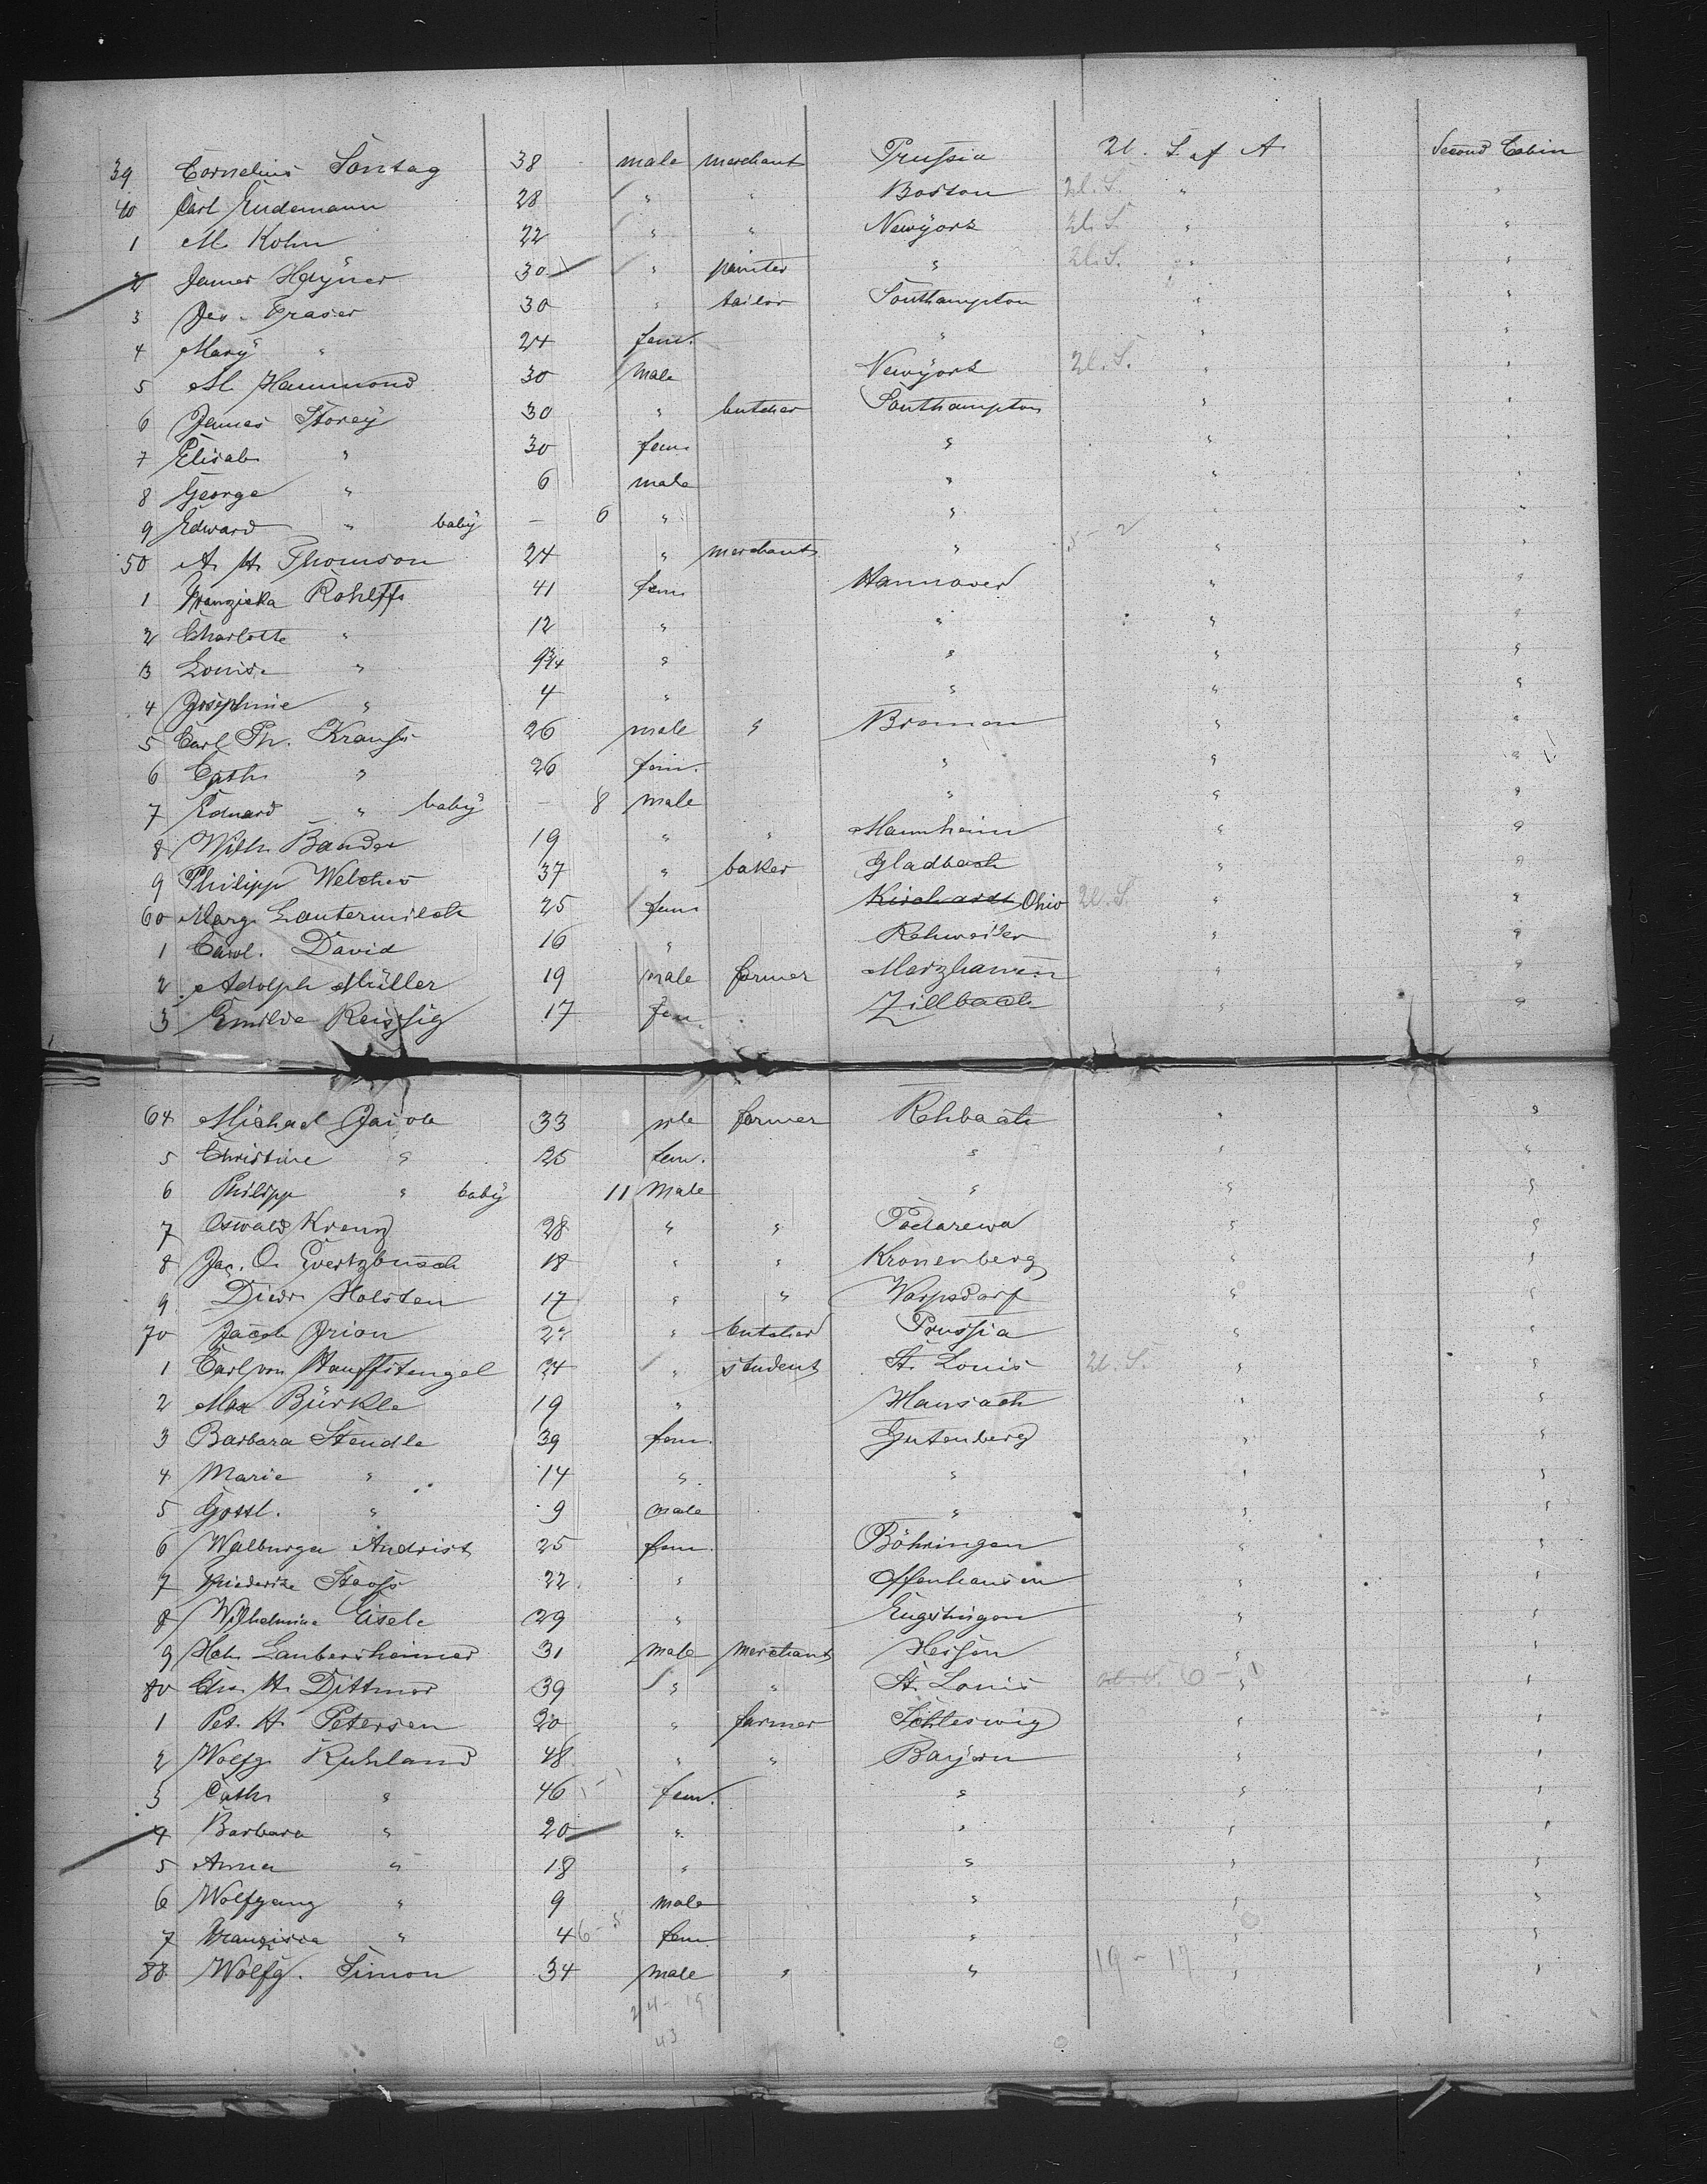 39 Cornelius Sontag 38 male merchant Prussia U. S. of A Second Cabin
40 Carl Eudemann 28 " " Boston U. S. " "
1 M. Kohn 22 " " Newyork U. S. " "
2 James Hayner 30 " painter " U. S. " "
3 Fraser 30 " tailor Southampton " "
4 Mary " 24 fem. " " "
5 M Hammond 30 male Newyork U. S. " "
6 James Storey 30 " butcher Southampton " "
7 Elisab. " 30 fem " " "
8 George " 6 male " " "
9 Edward " baby – 6 " " " "
50 A. H. Thomson 24 " merchant " 5 – 2 " "
1 Franziska Rohlffs 41 fem Hannover " "
2 Charlotte " 12 " " " "
3 Louise " 9 3/4 " " " "
4 Josephine " 4 " " " "
5 Carl Ph. Krauss 26 male " Bremen " "
6 Cath. " 26 fem. " " "
7 Eduard " baby – 8 male " " "
8 Wilh. Bander 19 " " Mannheim " "
9 Philipp Welcher 37 " baker Gladbach " "
60 Marg. Lautermilch 25 fem Kirchardt Ohio U. S. " "
1 Carol. David 16 " Rehweiler " "
2 Adolph Müller 19 male farmer Marzhausen " "
3 Emilie Reissig 17 fem. Zillbach " "
64 Michael Jacob 33 mle farmer Rehbach " "
5 Christine " 25 fem. " " "
6 Philipp " baby 11 Male " " "
7 Oswald Krenz 28 " " " "
8 Jac. O. Evertzbusch 18 " " Kronenberg " "
9 Diedr. Holsten 17 " " Worpsdorf " "
70 Jacob Irion " butcher Prussia " "
1 Carl von Hanffstengel 24 " student St. Louis U. S. " "
2 Max Bürkle 19 " Hausach " "
3 Barbara Stendle 39 fem. Gutenberg " "
4 Marie " 14 " " " "
5 Gottl. " 9 male " " "
6 Walburga Andrist 25 fem. Böhringen " "
7 Friederike Stooss 22 " Offenhausen " "
8 Wilhelmine Eisele 29 " Engstingen " "
9 Hch. Laubersheimer 31 male merchant Hessen " "
80 Chr. H. Dittmar 39 " " St. Louis U. S. 6 – 0 " "
1 Pet. H. Petersen 20 " farmer Schleswig " "
2 Wolfg. Ruhland 48 " " Bayern " "
3 Cath. " 46 fem. " " "
4 Barbara " 20 " " " "
5 Anna " 18 " " " "
6 Wolfgang " 9 male " " "
7 Franzisca " 4 6 – 5 fem. " " "
88 Wolfg. Simon 34 male " " 19 – 17 " "
24 – 19
43